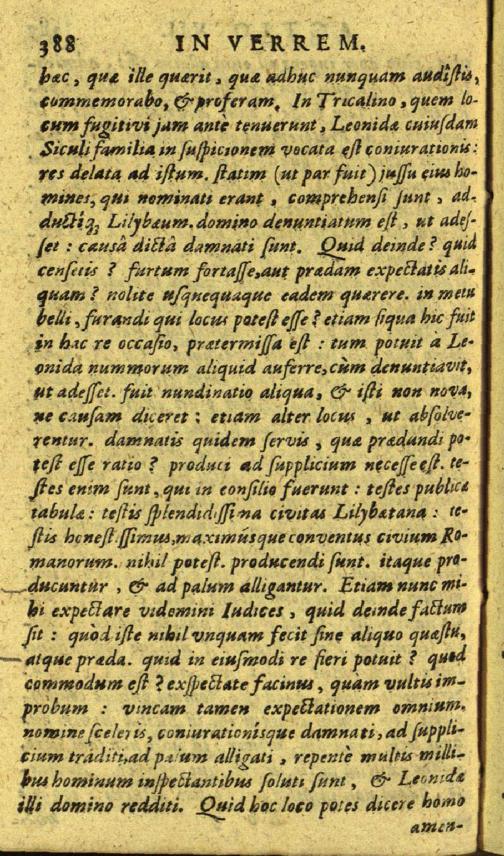 388 IN VERREM.
hæc, quæ ille quærit, quæ adhuc nunquam audistis,
commemorabo, & proferam. In Tricalino, quem lo-
cum fugitivi jam antè tenuerunt, Leonidæ cuiusdam
Siculi familia in suspicionem vocata est coniurationis:
res delata ad istum. statim (ut par fuit) jussu eius ho-
mines, qui nominati erant, comprehensi sunt, ad-
ductiq; Lilybæum. domino denuntiatum est, ut ades-
set: causâ dictâ damnati sunt. Quid deinde? quid
censetis? furtum fortasse, aut prædam expectatis ali-
quam? nolite usquequaque eadem quærere. in metu
belli, furandi qui locus potest esse? etiam siqua hic fuit
in hac re occasio, prætermissa est: tum potuit a Le-
onida nummorum aliquid auferre, cùm denuntiavit,
ut adesset. fuit nundinatio aliqua, & isti non nova,
ne causam diceret: etiam alter locus, ut absolve-
rentur. damnatis quidem servis, quæ prædandi po-
test esse ratio? produci ad supplicium necesse est. te-
stes enim sunt, qui in consilio fuerunt: testes publicæ
tabulæ: testis splendidissima civitas Lilybætana: te-
stis honestissimus, maximúsque conventus civium Ro-
manorum. nihil potest. producendi sunt. itaque pro-
ducuntur, & ad palum alligantur. Etiam nunc mi-
hi expectare videmini Iudices, quid deinde factum
sit: quòd iste nihil vnquam fecit sine aliquo quæstu,
atque præda. quid in eiusmodi re fieri potuit? quod
commodum est? exspectate facinus, quàm vultis im-
probum: vincam tamen expectationem omnium.
nomine sceleris, coniurationísque damnati, ad suppli-
cium traditi, ad palum alligati, repentè multis milli-
bus hominum inspectantibus soluti sunt, & Leonidæ
illi domino redditi. Quid hoc loco potes dicere homo
amen-